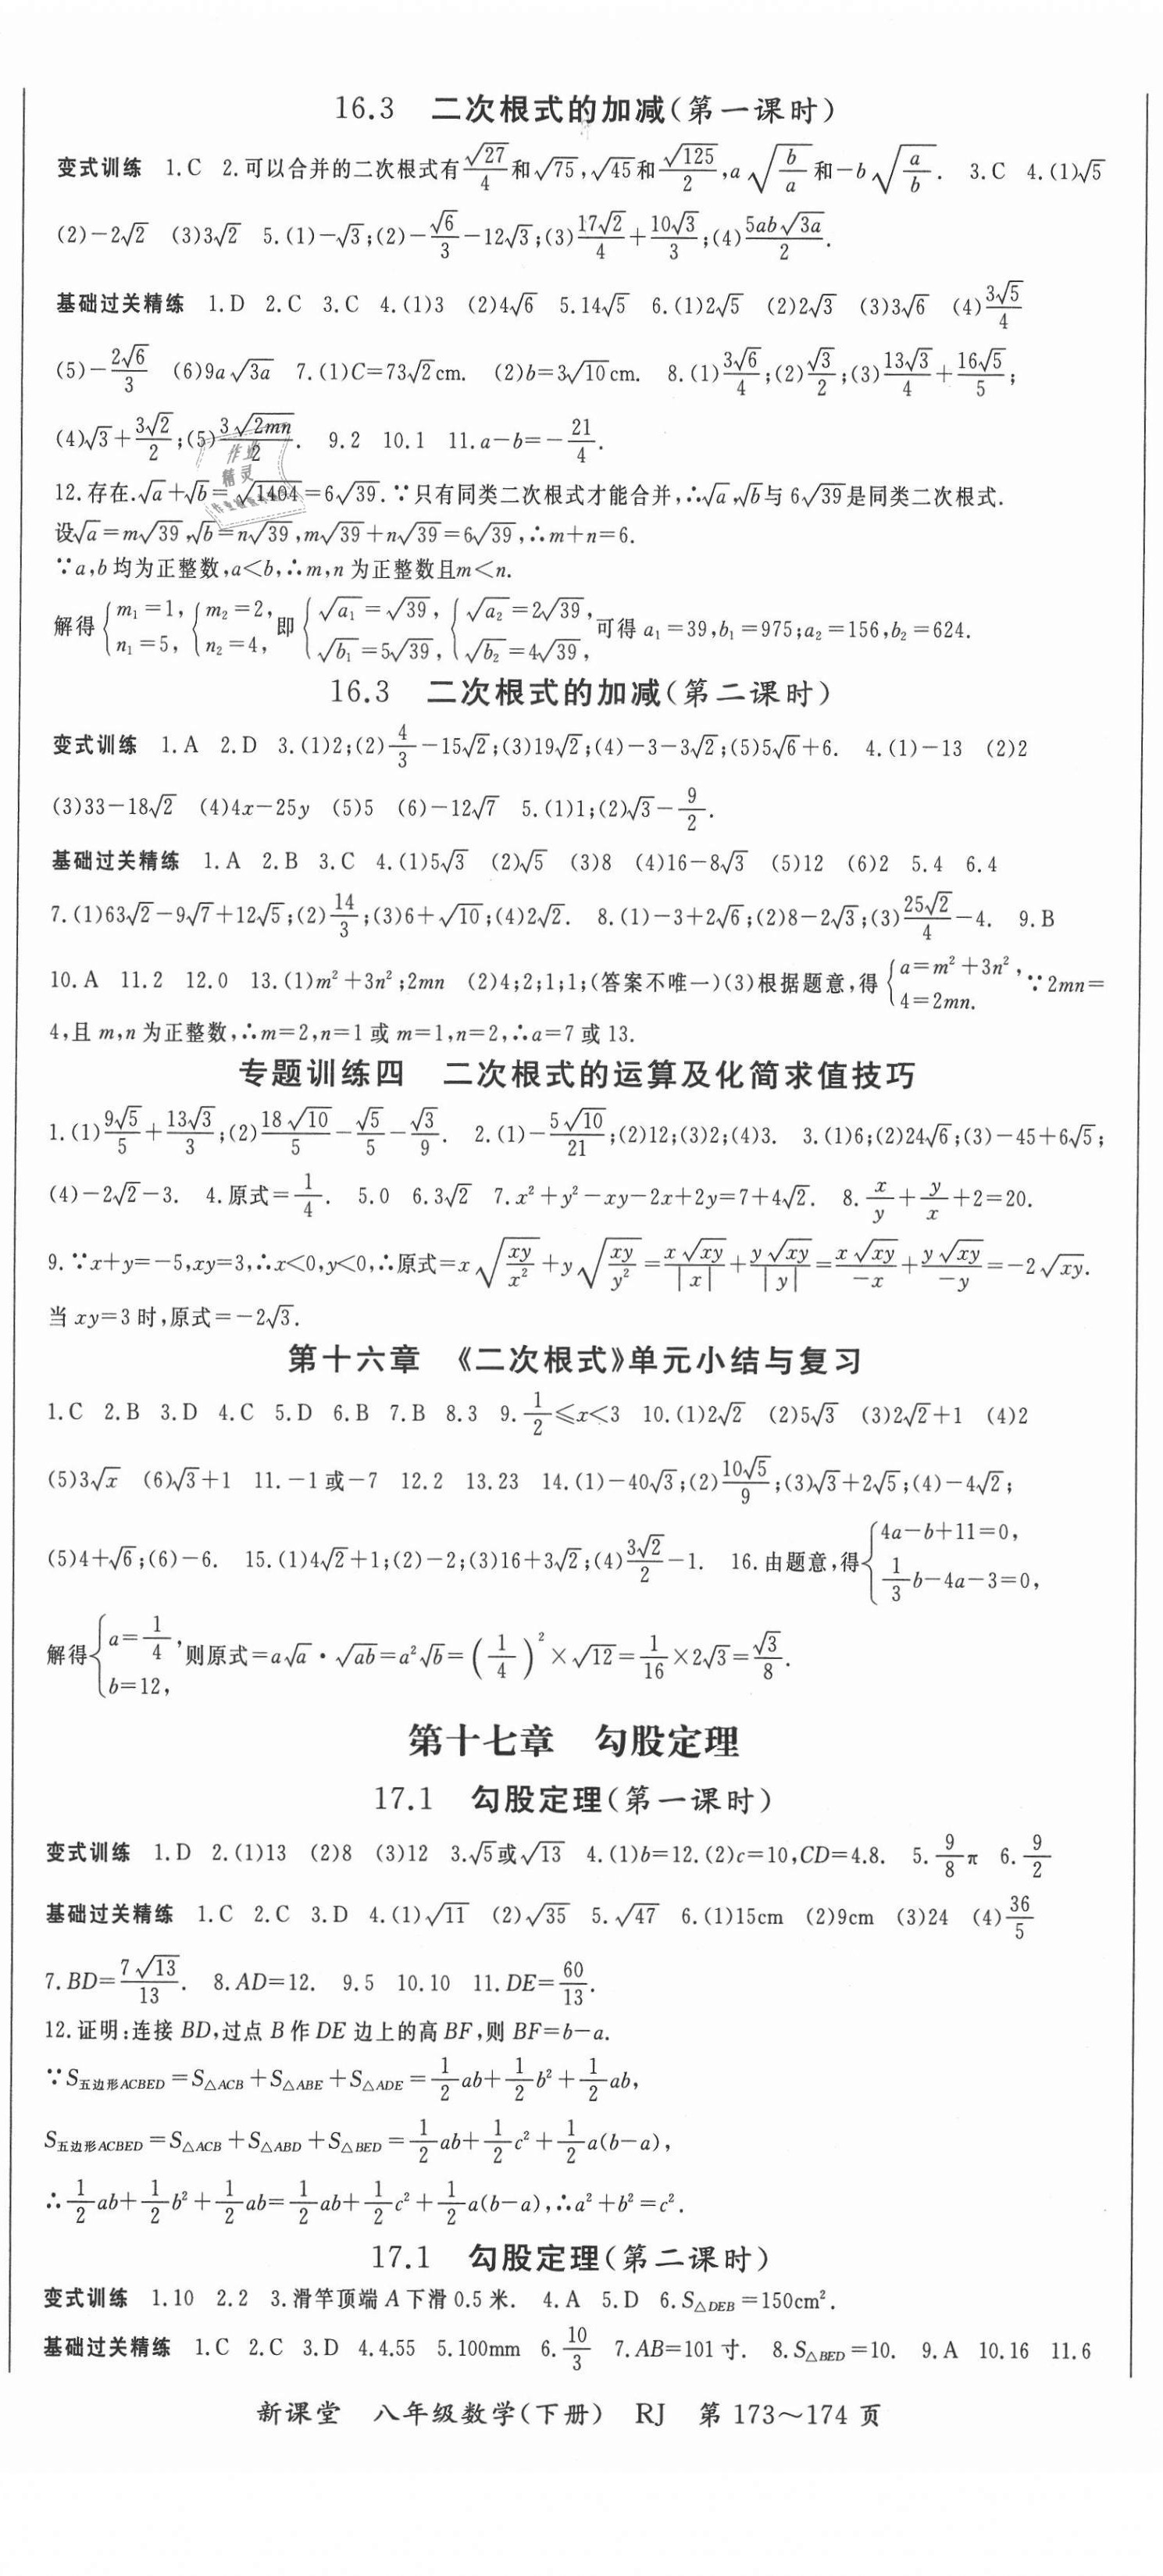 16.3 二次根式的加减(第一课时)
变式训练 1.C 2.可以合并的二次根式有√27/4和√75,√45和√125/2,a√(b/a)和-b√(a/b). 3.C 4.(1)√5
(2)-2√2 (3)3√2 5.(1)-√3;(2)-√6/3-12√3;(3)17√2/4+10√3/3;(4)5ab√3a/2.
基础过关精练 1.D 2.C 3.C 4.(1)3 (2)4√6 5.14√5 6.(1)2√5 (2)2√3 (3)3√6 (4)3√5/4
(5)-2√6/3 (6)9a√3a 7.(1)C=73√2cm. (2)b=3√10cm. 8.(1)3√6/4;(2)√3/2;(3)13√3/4+16√5/5;
(4)√3+3√2/2;(5)3√2mn/2. 9.2 10.1 11.a-b=-21/4.
作业
精灵
12.存在.√a+√b=√1404=6√39.∵只有同类二次根式才能合并,∴√a,√b与6√39是同类二次根式.
设√a=m√39,√b=n√39,m√39+n√39=6√39,∴m+n=6.
∵a,b均为正整数,a<b,∴m,n为正整数且m<n.
解得{m₁=1,n₁=5,{m₂=2,n₂=4,即{√a₁=√39,√b₁=5√39,{√a₂=2√39,√b₂=4√39,可得a₁=39,b₁=975;a₂=156,b₂=624.
16.3 二次根式的加减(第二课时)
变式训练 1.A 2.D 3.(1)2;(2)4/3-15√2;(3)19√2;(4)-3-3√2;(5)5√6+6. 4.(1)-13 (2)2
(3)33-18√2 (4)4x-25y (5)5 (6)-12√7 5.(1)1;(2)√3-9/2.
基础过关精练 1.A 2.B 3.C 4.(1)5√3 (2)√5 (3)8 (4)16-8√3 (5)12 (6)2 5.4 6.4
7.(1)63√2-9√7+12√5;(2)14/3;(3)6+√10;(4)2√2. 8.(1)-3+2√6;(2)8-2√3;(3)25√2/4-4. 9.B
10.A 11.2 12.0 13.(1)m²+3n²;2mn (2)4;2;1;1;(答案不唯一)(3)根据题意,得{a=m²+3n²,4=2mn.∵2mn=
4,且m,n为正整数,∴m=2,n=1或m=1,n=2,∴a=7或13.
专题训练四 二次根式的运算及化简求值技巧
1.(1)9√5/5+13√3/3;(2)18√10/5-√5/5-√3/9. 2.(1)-5√10/21;(2)12;(3)2;(4)3. 3.(1)6;(2)24√6;(3)-45+6√5;
(4)-2√2-3. 4.原式=1/4. 5.0 6.3√2 7.x²+y²-xy-2x+2y=7+4√2. 8.x/y+y/x+2=20.
9.∵x+y=-5,xy=3,∴x<0,y<0,∴原式=x√(xy/x²)+y√(xy/y²)=x√xy/|x|+y√xy/|y|=x√xy/-x+y√xy/-y=-2√xy.
当xy=3时,原式=-2√3.
第十六章 《二次根式》单元小结与复习
1.C 2.B 3.D 4.C 5.D 6.B 7.B 8.3 9.1/2≤x<3 10.(1)2√2 (2)5√3 (3)2√2+1 (4)2
(5)3√x (6)√3+1 11.-1或-7 12.2 13.23 14.(1)-40√3;(2)10√5/9;(3)√3+2√5;(4)-4√2;
(5)4+√6;(6)-6. 15.(1)4√2+1;(2)-2;(3)16+3√2;(4)3√2/2-1. 16.由题意,得{4a-b+11=0,1/3b-4a-3=0,
解得{a=1/4,b=12,则原式=a√a·√ab=a²√b=(1/4)²×√12=1/16×2√3=√3/8.
第十七章 勾股定理
17.1 勾股定理(第一课时)
变式训练 1.D 2.(1)13 (2)8 (3)12 3.√5或√13 4.(1)b=12.(2)c=10,CD=4.8. 5.9/8π 6.9/2
基础过关精练 1.C 2.C 3.D 4.(1)√11 (2)√35 5.√47 6.(1)15cm (2)9cm (3)24 (4)36/5
7.BD=7√13/13. 8.AD=12. 9.5 10.10 11.DE=60/13.
12.证明:连接BD,过点B作DE边上的高BF,则BF=b-a.
∵S五边形ACBED=S△ACB+S△ABE+S△ADE=1/2ab+1/2b²+1/2ab,
S五边形ACBED=S△ACB+S△ABD+S△BED=1/2ab+1/2c²+1/2a(b-a),
∴1/2ab+1/2b²+1/2ab=1/2ab+1/2c²+1/2a(b-a),∴a²+b²=c².
17.1 勾股定理(第二课时)
变式训练 1.10 2.2 3.滑竿顶端A下滑0.5米. 4.A 5.D 6.S△DEB=150cm².
基础过关精练 1.C 2.C 3.D 4.4.55 5.100mm 6.10/3 7.AB=101寸. 8.S△BED=10. 9.A 10.16 11.6
新课堂 八年级数学(下册) RJ 第173～174页